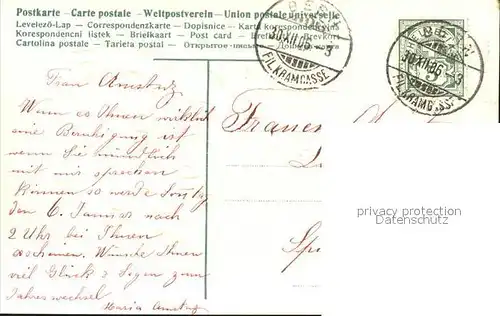 Postkarte – Carte postale – Weltpostverein – Union postale universelle
Levelező-Lap – Correspondenzkarte – Dopisnice – Karta korespondencyjna
Korespondenční listek – Briefkaart – Post card – Brefkort – Brevkort
Cartolina postale – Tarjeta postal – Открытое письмо – Дописна карта
BERN
30.XII.06. 3
FIL.KRAMGASSE
BERN
30.XII.06. 3
FIL.KRAMGASSE
HELVETIA
5
Frau Amstutz
Wenn es Ihnen wirklich
eine Beruhigung ist
wenn Sie mündlich
mit mir sprechen
können so werde Sonntag
den 6. Januar nach
2 Uhr bei Ihnen
erscheinen. Wünsche Ihnen
viel Glück & Segen zum
Jahreswechsel
Maria Amstutz
Frauen
privacy protection
Datenschutz